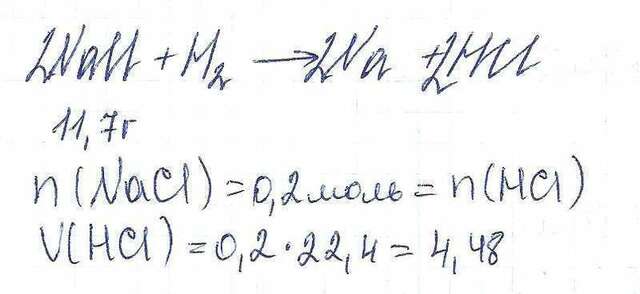 2NaCl + H₂ → 2Na + 2HCl
11,7г
n(NaCl) = 0,2 моль = n(HCl)
V(HCl) = 0,2 · 22,4 = 4,48